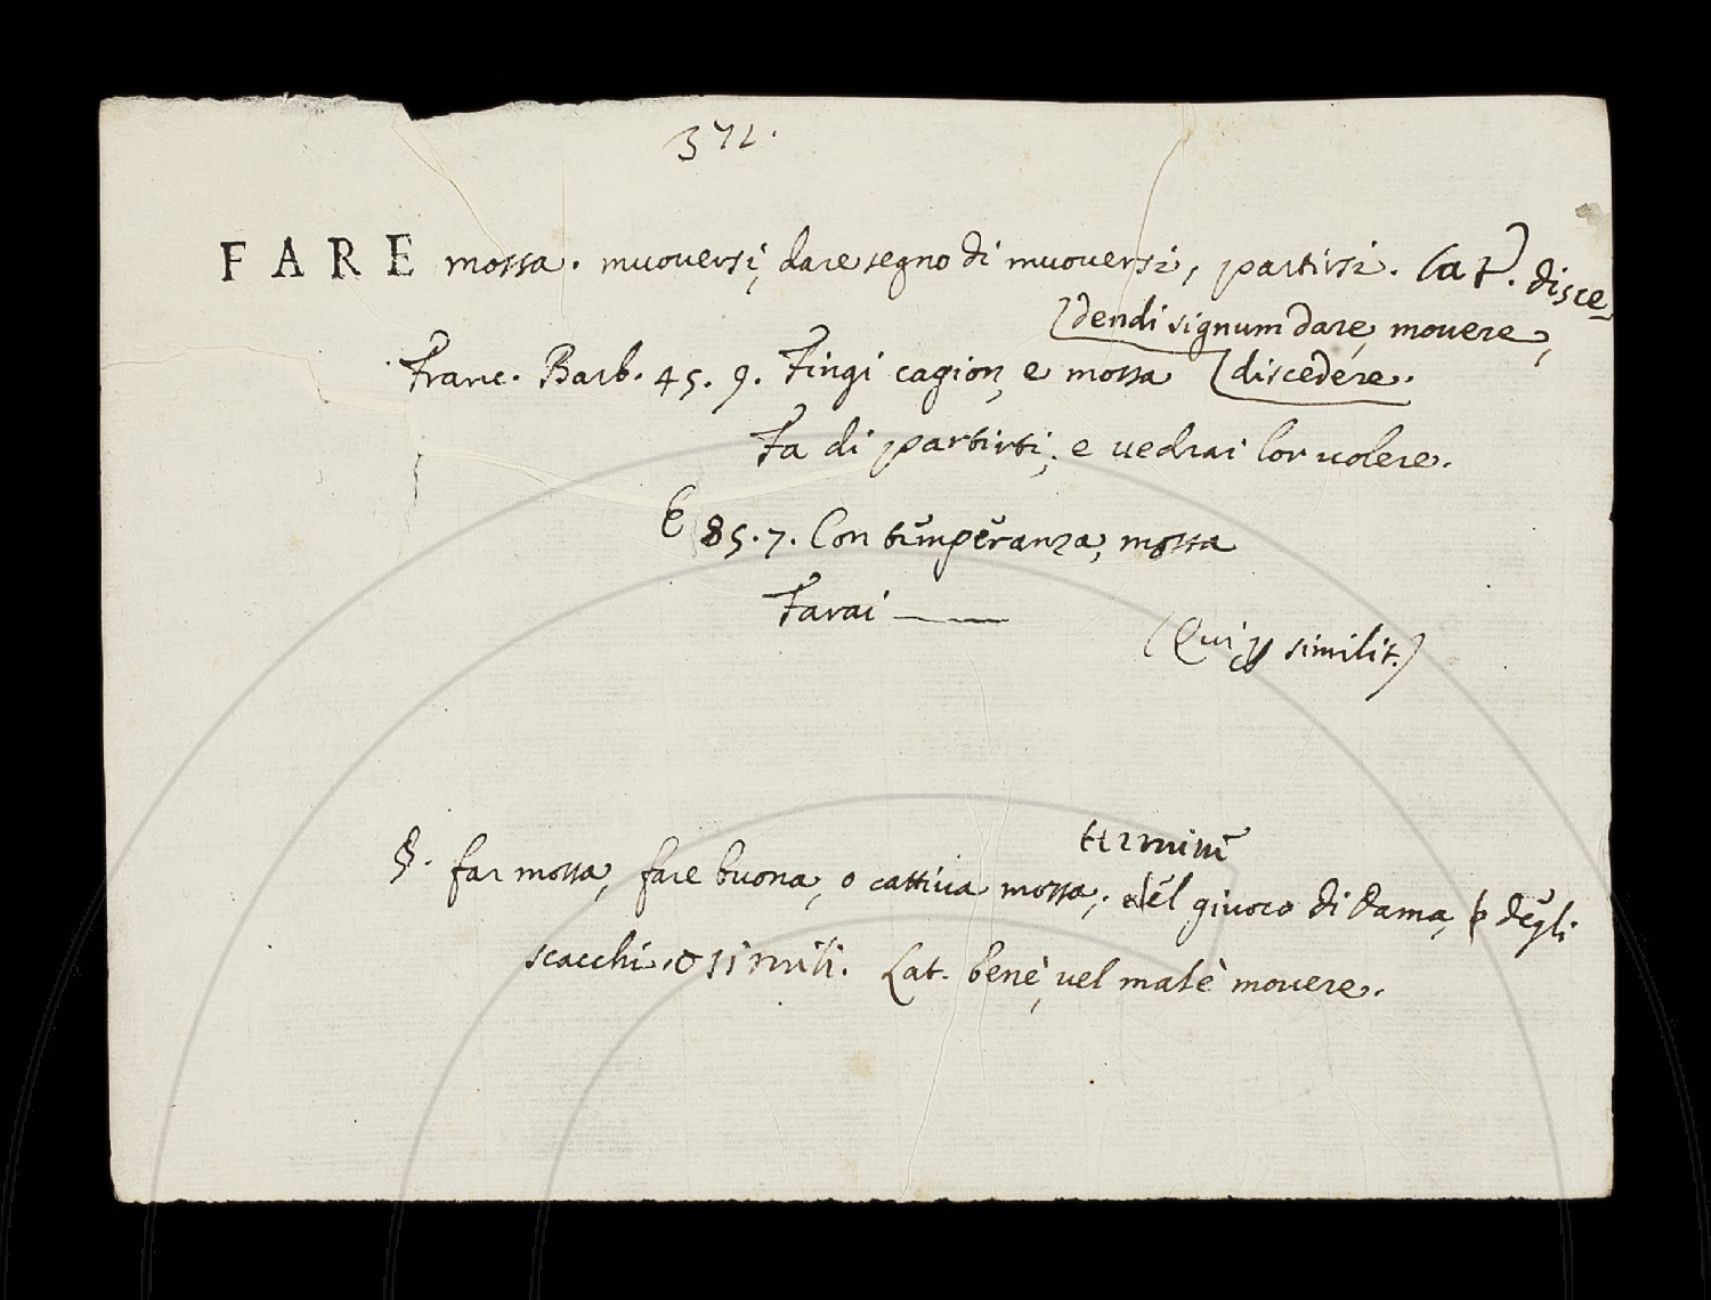 372.
FARE mossa. muoversi, dare segno di muoversi, partirsi. Lat. disce-
dendi signum dare, movere,
discedere.
Franc. Barb. 45. 9. Fingi cagion, e mossa
Fa di partirti; e vedrai lor volere.
E 85. 7. Con temperanza, mossa
Farai ——
(Qui similit.)
termine
§. far mossa, fare buona, o cattiva mossa; del giuoco di dama, degli
scacchi, o simili. Lat. benè, vel malè movere.